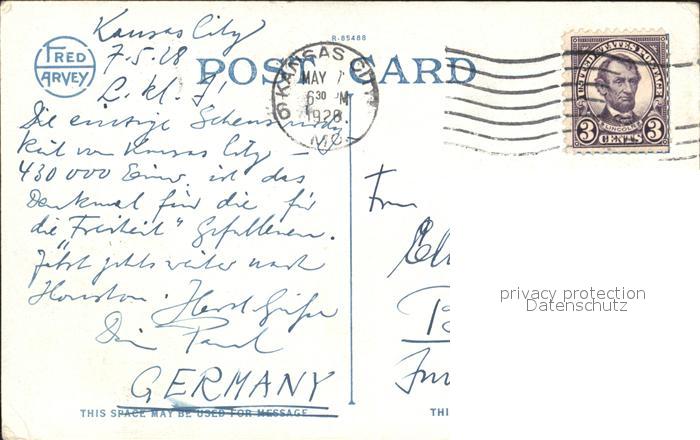 Kansas City
R-85488
FRED HARVEY
7.5.28
POST CARD
KANSAS CITY
MAY 7
6 30 PM
1928
MO.
UNITED STATES POSTAGE
LINCOLN
3 CENTS 3
L. kl. J!
Die einzige Sehenswürdig-
keit von Kansas City –
430 000 Einw. ist das
Denkmal für die für
die "Freiheit" Gefallenen.
Jetzt gehts weiter nach
Houston. Herzl. Grüße
Dein Paul
GERMANY
Frau
THIS SPACE MAY BE USED FOR MESSAGE
THI
privacy protection
Datenschutz